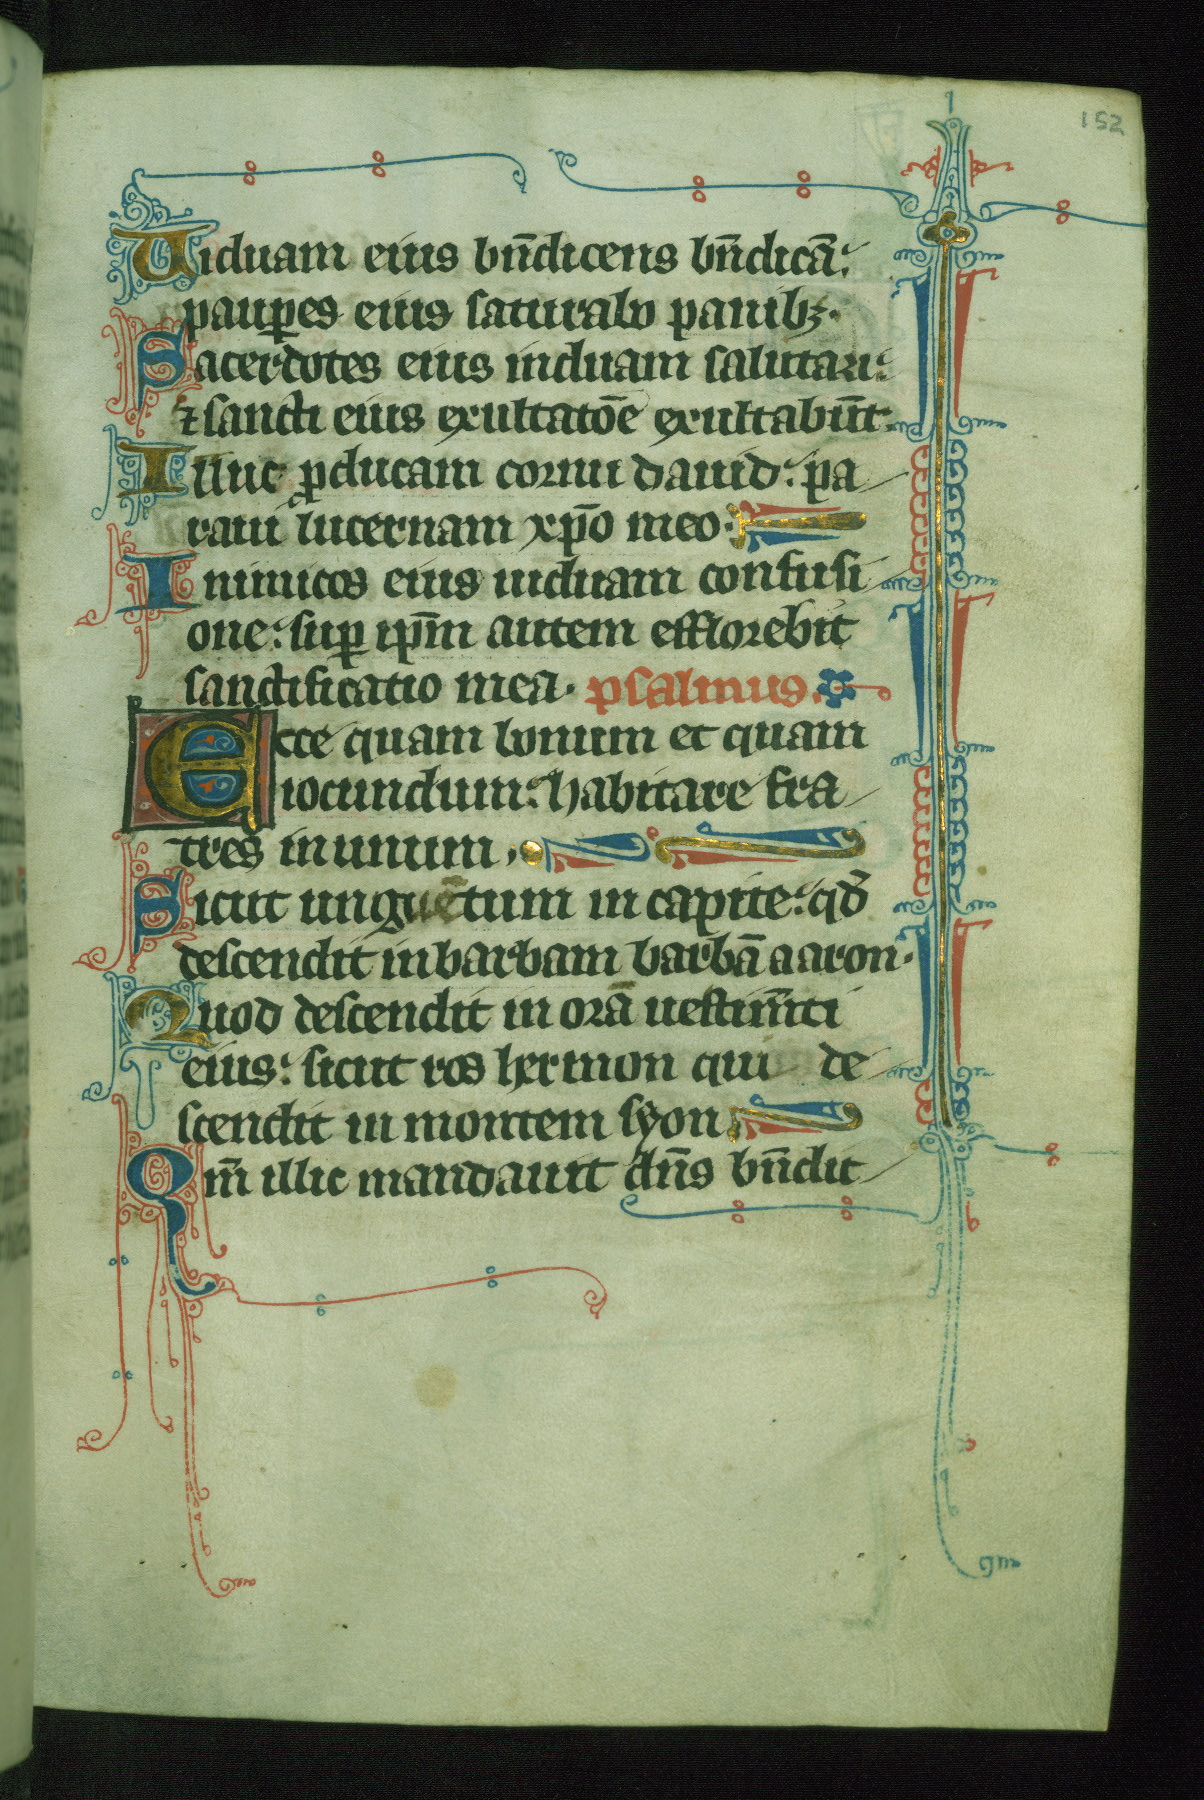 152
Uiduam eius bn̄dicens bn̄dicā:
paup̲es eius saturabo panibꝫ.
Sacerdotes eius induam salutari:
⁊ sancti eius exultatōe exultabūt.
Illuc ꝓducam cornu dauid: pa
raui lucernam xp̄o meo.
Inimicos eius induam confusi
one: suꝑ ip̄m autem efflorebit
sanctificatio mea. psalmus.
Ecce quam bonum et quam
iocundum: habitare fra
tres in unum.
Sicut unguētum in capite: qd̄
descendit in barbam barbā aaron.
Quod descendit in orā uestim̄ti
eius: sicut ros hermon qui de
scendit in montem syon
Qm̄ illic mandauit dn̄s bn̄dic